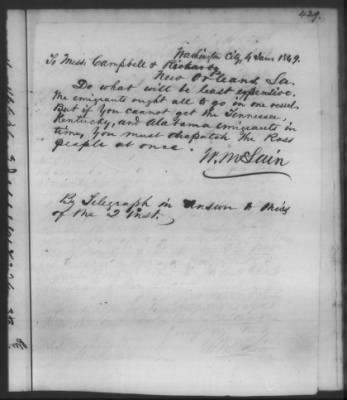 429.
Washington City, 4 Jan 1849.
To Messrs Campbell & Richards
New Orleans La.
Do what will be least expensive.
The emigrants ought all to go in one vessel.
But if you cannot get the Tennessee,
Kentucky, and Alabama emigrants in
time, you must despatch the Ross
people at once.
W. McLain
By Telegraph in answer to this
of the 2 inst.